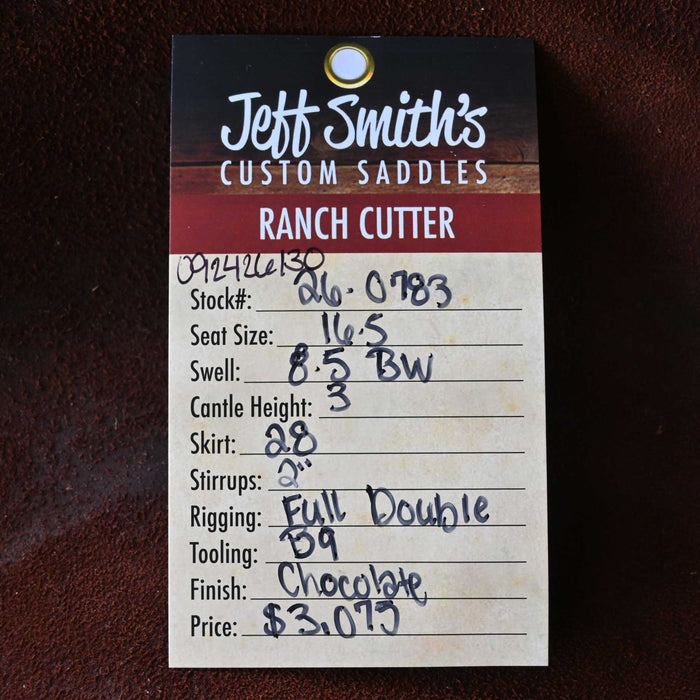 Jeff Smith's
CUSTOM SADDLES
RANCH CUTTER
092426130
Stock#: 26-0783
Seat Size: 16.5
Swell: 8.5 BW
Cantle Height: 3
Skirt: 28
Stirrups: 2"
Rigging: Full Double
Tooling: B9
Finish: Chocolate
Price: $3,075